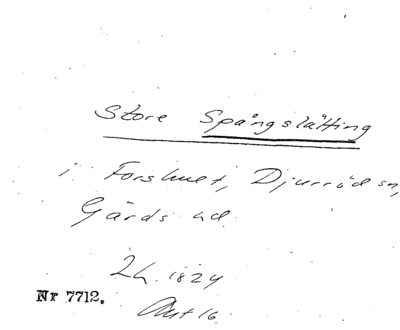 Store Spångslätting
i Forshult, Djurröd sn,
Gärds hd.
Lh. 1824
Nr 7712.
Akt 16.